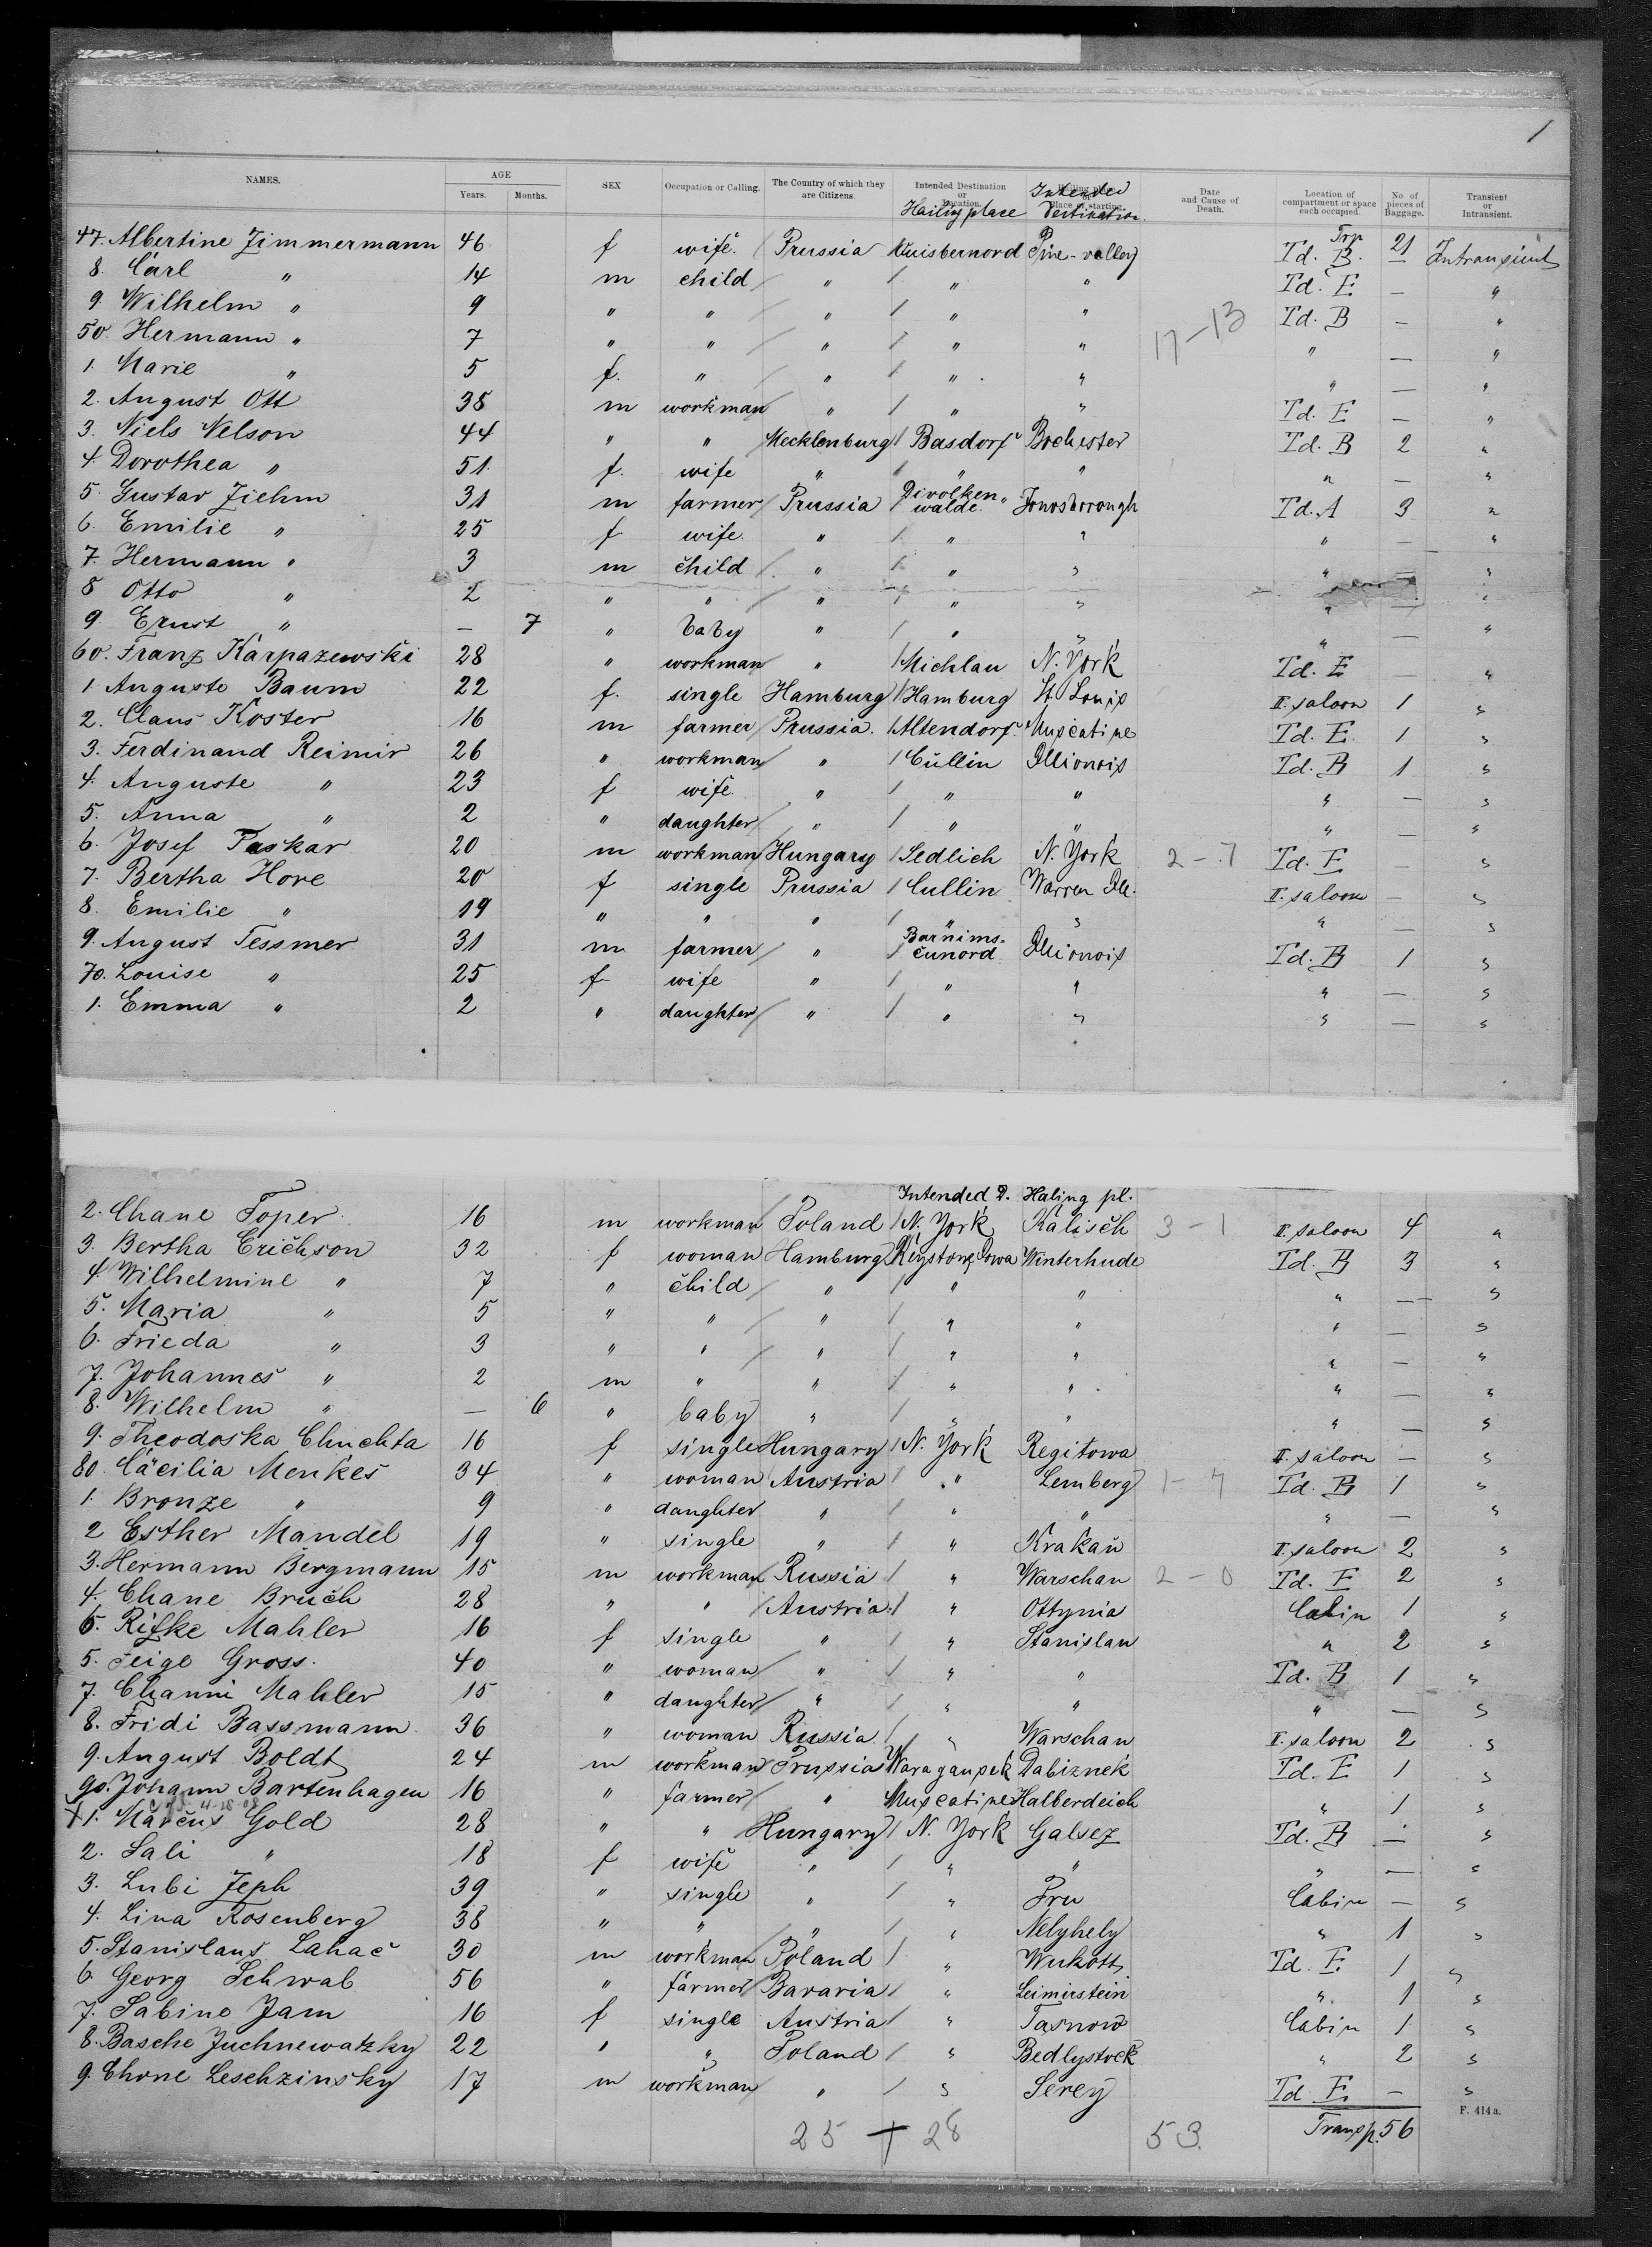 1
NAMES. AGE Years. Months. SEX Occupation or Calling. The Country of which they are Citizens. Intended Destination or Location. Hailing place Intended Destination. Date and Cause of Death. Location of compartment or space each occupied. No of pieces of Baggage. Transient or Intransient.
47. Albertine Zimmermann 46 f wife. Prussia Pine-valley Trp 21
Td. B. — Intransient
8. Carl " 14 m child " " " Td. E — "
9. Wilhelm " 9 " " " " " Td. B — "
50. Hermann " 7 " " " " " 17-13 " — "
1. Marie " 5 f. " " " " " — "
2. August Ott 38 m workman " " " Td. E — "
3. Niels Nelson 44 " " Mecklenburg Basdorf Td. B 2 "
4. Dorothea " 51. f. wife " " " " — "
5. Gustav Ziehm 31 m farmer Prussia walde. Td. A 3 "
6. Emilie " 25 f wife. " " " " — "
7. Hermann " 3 m child " " " " — "
8 Otto " 2 " " " " " " — "
9. Ernst " — 7 " baby " " " " — "
60. Franz Karpazewski 28 " workman " Michlau N. York Td. E — "
1. Auguste Baum 22 f. single Hamburg Hamburg St. Louis II. saloon 1 "
2. Claus Koster 16 m farmer Prussia. Altendorf. Muscatine Td. E. 1 "
3. Ferdinand Reimir 26 " workman " Cüllin Illionois Td. B 1 "
4. Auguste " 23 f wife. " " " " — "
5. Anna " 2 " daughter " " " " — "
6. Josef Taskar 20 m workman Hungary Sedlich N. York 2-7 Td. E — "
7. Bertha Hore 20 f single Prussia Cullin Warren Ill. II. saloon — "
8. Emilie " 19 " " " " " " — "
9. August Tessmer 31 m farmer " Barnims-cunord Illionois Td. B 1 "
70. Louise " 25 f wife " " " " — "
1. Emma " 2 " daughter " " " " — "
Intended D. Haling pl.
2. Chane Toper 16 m workman Poland N. York Kalisch 3-1 II. saloon 4 "
3. Bertha Erichson 32 f woman Hamburg Keystone Iowa Winterhude Td. B 3 "
4. Wilhelmine " 7 " child " " " " — "
5. Maria " 5 " " " " " " — "
6. Frieda " 3 " " " " " " — "
7. Johannes " 2 m " " " " " — "
8. Wilhelm " — 6 " baby " " " " — "
9. Theodoska Chuchta 16 f single Hungary N. York Regitowa II. saloon — "
80. Cäcilia Menkes 34 " woman Austria " Lemberg Td. B 1 "
1. Bronze " 9 " daughter " " " " — "
2 Esther Mandel 19 " single " " Krakau II. saloon 2 "
3. Hermann Bergmann 15 m workman Russia " Warschau 2-0 Td. E 2 "
4. Chane Bruch 28 " " Austria " Ottynia Cabin 1 "
6. Rifke Mahler 16 f single " " Stanislau " 2 "
5. Feige Gross. 40 " woman " " " Td. B 1 "
7. Channi Mahler 15 " daughter " " " " — "
8. Fridi Bassmann 36 " woman Russia " Warschau II. saloon 2 "
9. August Boldt 24 m workman Prussia Dabiznek Td. E 1 "
90. Johann Bartenhagen 16 " farmer " Muscatine Halberdeich " 1 "
X 1. Marcus Gold 28 " " Hungary N. York Galsez Td. B — "
2. Sali " 18 f wife " " " " — "
3. Lubi Jeph 39 " single " " Cabin — "
4. Lina Rosenberg 38 " " " " Nelyhely " 1 "
5. Stanislaus Lahac 30 m workman Poland " Td. E 1 "
6. Georg Schwab 56 " farmer Bavaria " Leimirstein " 1 "
7. Sabine Jam 16 f single Austria " Tasnow Cabin 1 "
8. Basche Juchnewatzky 22 " " Poland " Bedlystock " 2 "
9. Chone Leschzinsky 17 m workman " " Serey Td E. — "
F. 414a.
25 + 28 53. Transp. 56